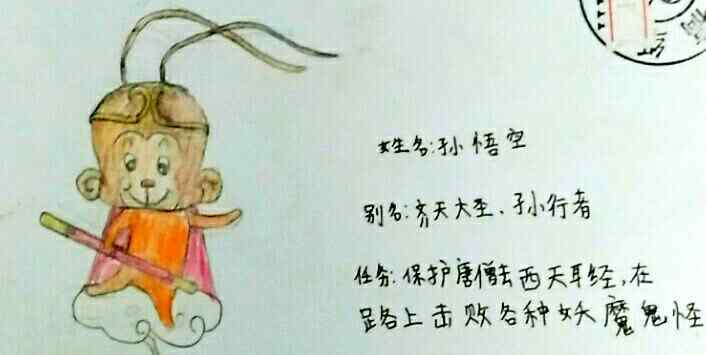 姓名:孙悟空
别名:齐天大圣、孙行者
任务:保护唐僧去西天取经,在
路上击败各种妖魔鬼怪